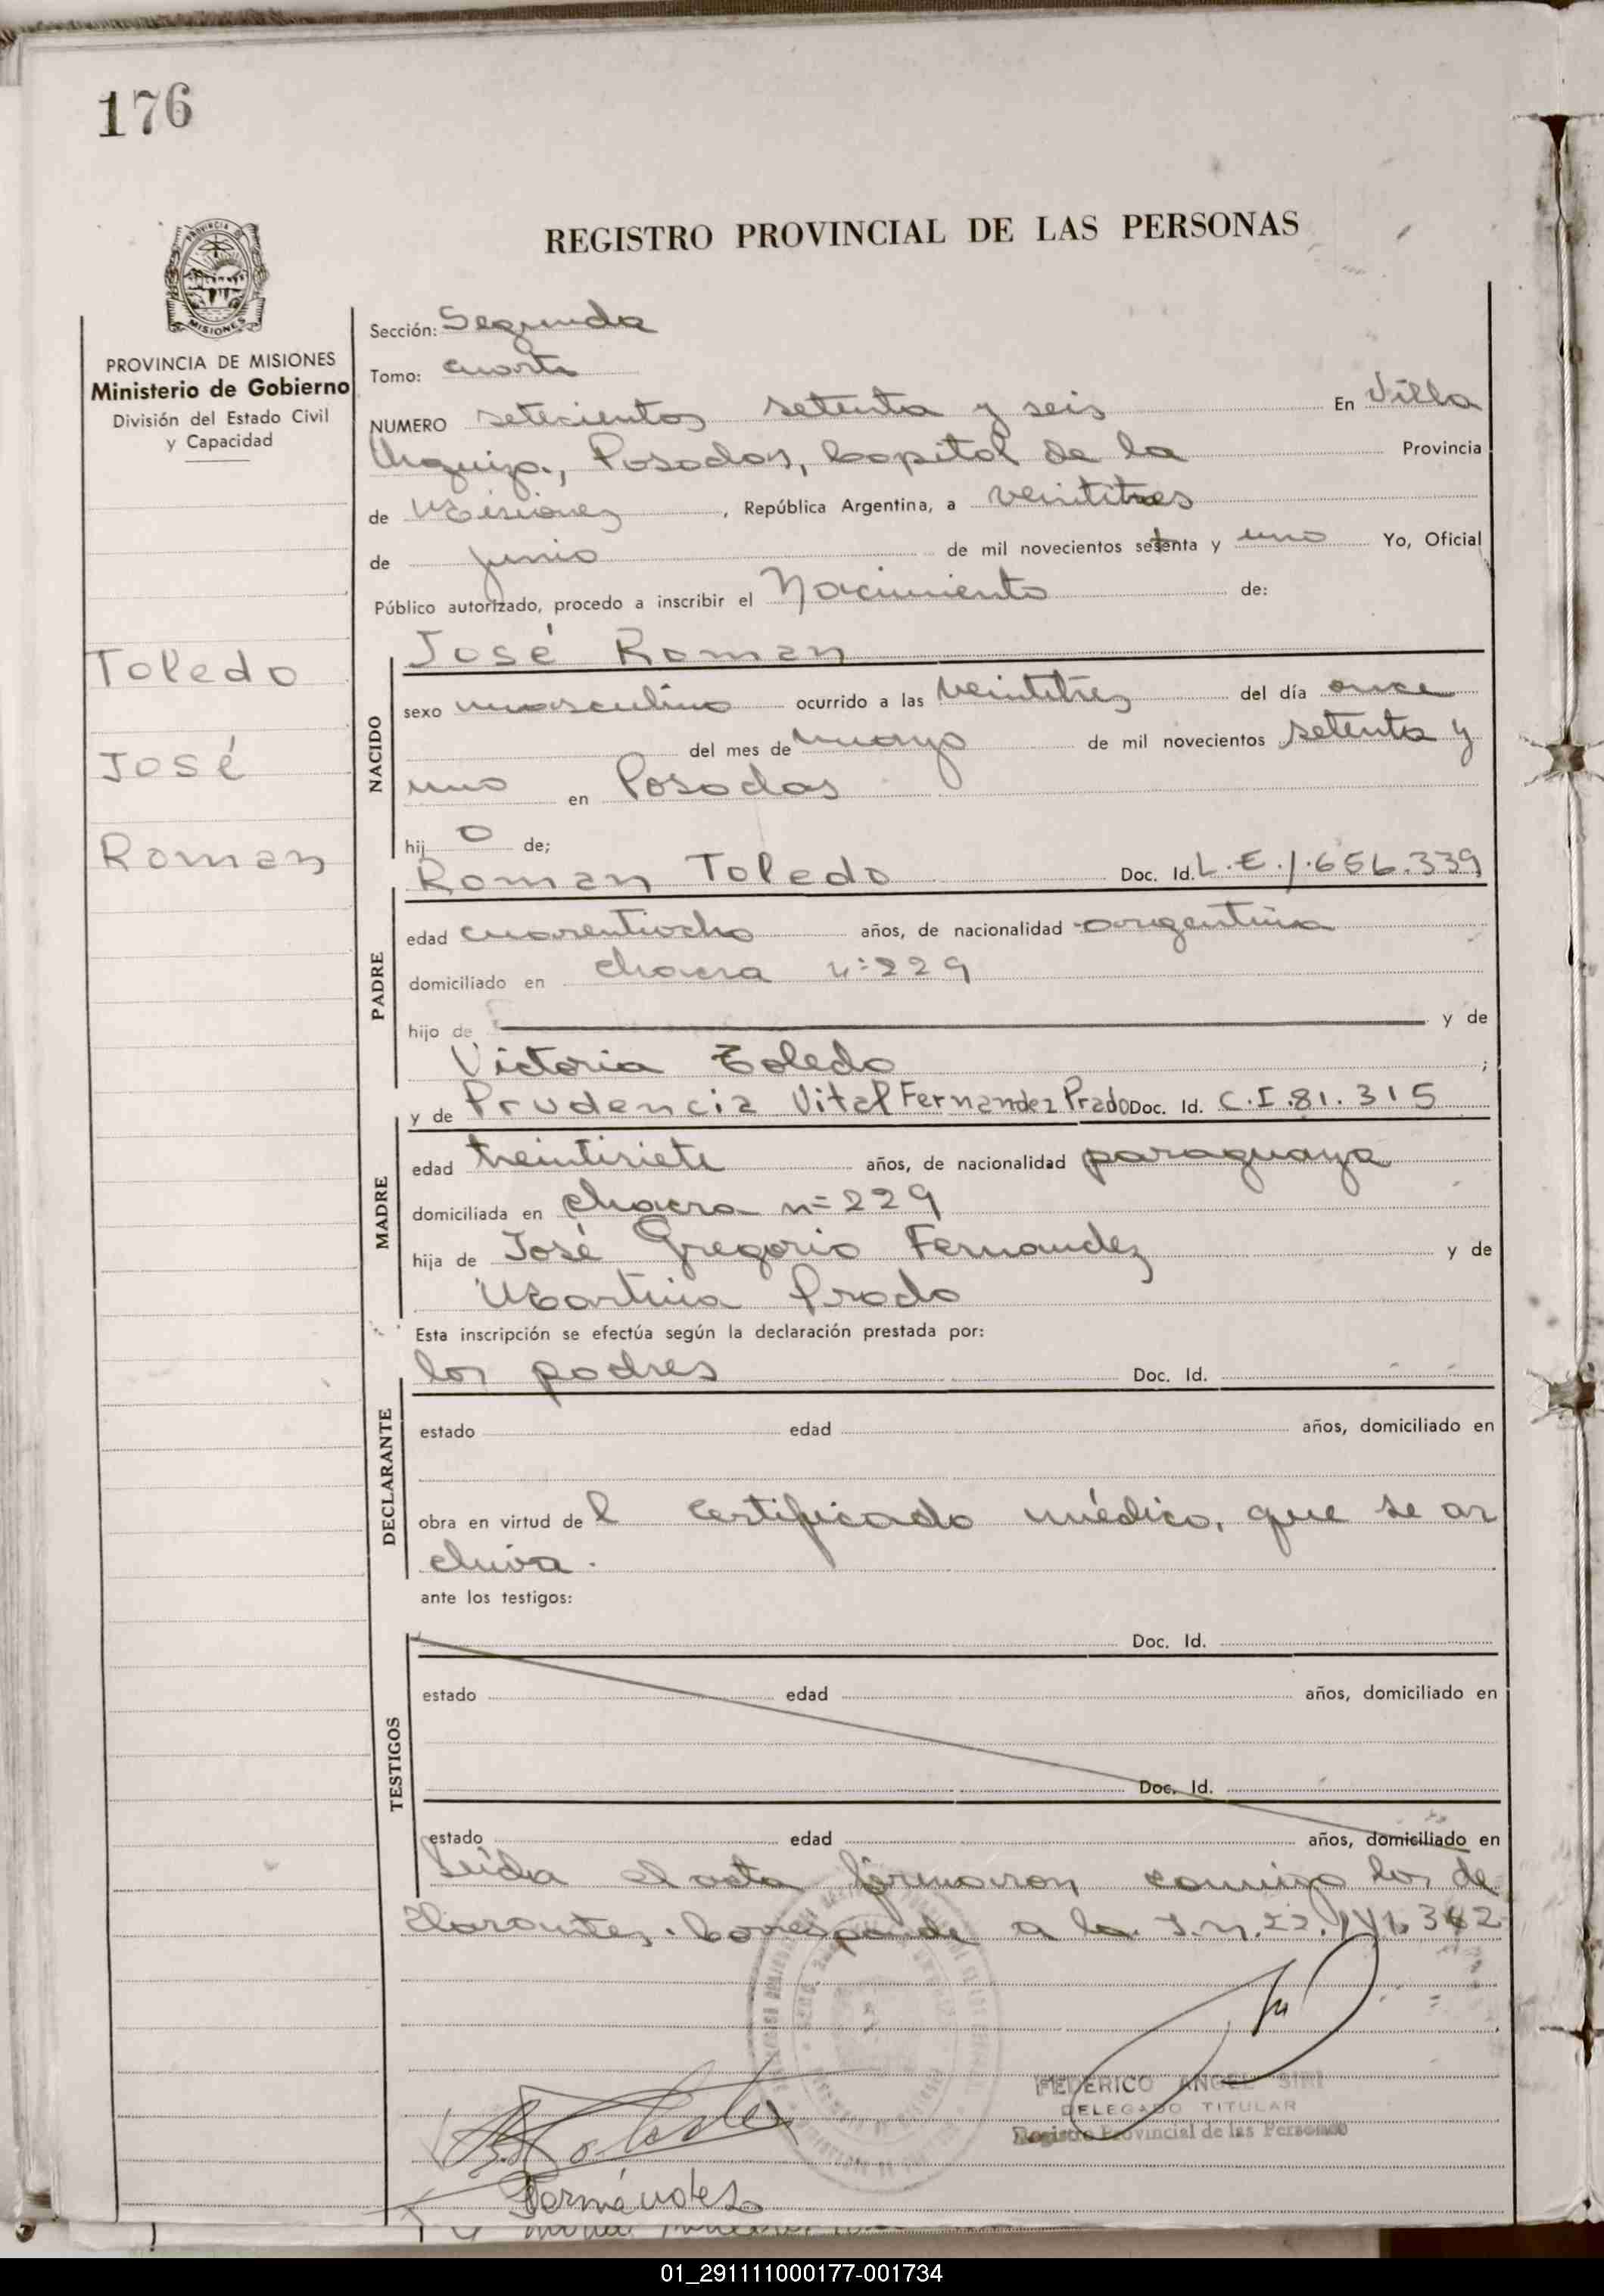 176
REGISTRO PROVINCIAL DE LAS PERSONAS
PROVINCIA DE MISIONES
Ministerio de Gobierno
División del Estado Civil
y Capacidad
Toledo
José
Roman
Sección: Segunda
Tomo: cuarto
NUMERO setecientos setenta y seis En Villa
Urquiza, Posadas, Capital de la Provincia
de Misiones, República Argentina, a veintitres
de junio de mil novecientos setenta y uno Yo, Oficial
Público autorizado, procedo a inscribir el Nacimiento de:
José Roman
NACIDO
sexo masculino ocurrido a las veintitrez del día once
del mes de mayo de mil novecientos setenta y
uno en Posadas
hij o de;
Roman Toledo Doc. Id. L.E.1.656.339
PADRE
edad cuarentiocho años, de nacionalidad argentina
domiciliado en chacra nº 229
hijo de y de
Victoria Toledo ;
y de Prudencia Vital Fernandez Prado Doc. Id. C.I.81.315
MADRE
edad treintisiete años, de nacionalidad paraguaya
domiciliada en chacra nº 229
hija de José Gregorio Fernandez y de
Martina Prado
Esta inscripción se efectúa según la declaración prestada por:
los padres Doc. Id.
DECLARANTE
estado edad años, domiciliado en
obra en virtud de l certificado médico, que se ar
chiva.
ante los testigos:
Doc. Id.
TESTIGOS
estado edad años, domiciliado en
Doc. Id.
estado edad años, domiciliado en
Leída el acta firmaron conmigo los de
clarantes. Corresponde a la I.N.22.
FEDERICO ANGEL SIRI
DELEGADO TITULAR
Registro Provincial de las Personas
Toledo
Fernández
01_291111000177-001734